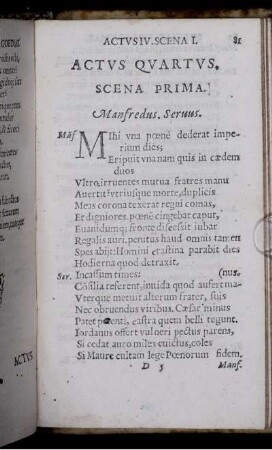 ACTVS IV. SCENA I. 81
ACTVS QVARTVS,
SCENA PRIMA.
Manfredus. Seruus.
Mãf. MIhi vna pœnè dederat impe
rium dies;
Eripuit vna nam quis in cædem
duos
Vltrò irruentes mutua fratres manu
Auertit? vtriusque morte, duplicis
Meas corona texerat regni comas,
Et digniores pœnè cingebat caput,
Euanidumq; fronte discessit iubar
Regalis auri, penitus haud omnis tamen
Spes abijt: Homini crastina parabit dies
Hodierna quod detraxit.
Ser. Incassum times: (nus,
Cõsilia referent, inuida quod aufert ma-
Vterque metuit alterum frater, suis
Nec obruendus viribus. Cæsar minus
Patet petenti, castra quem belli tegunt.
Iordanus offert vulneri pectus parens,
Si cedat auro miles euictus, coles
Si Maure cultam lege Pœnorum fidem.
D 3 Manf.
ACTVS